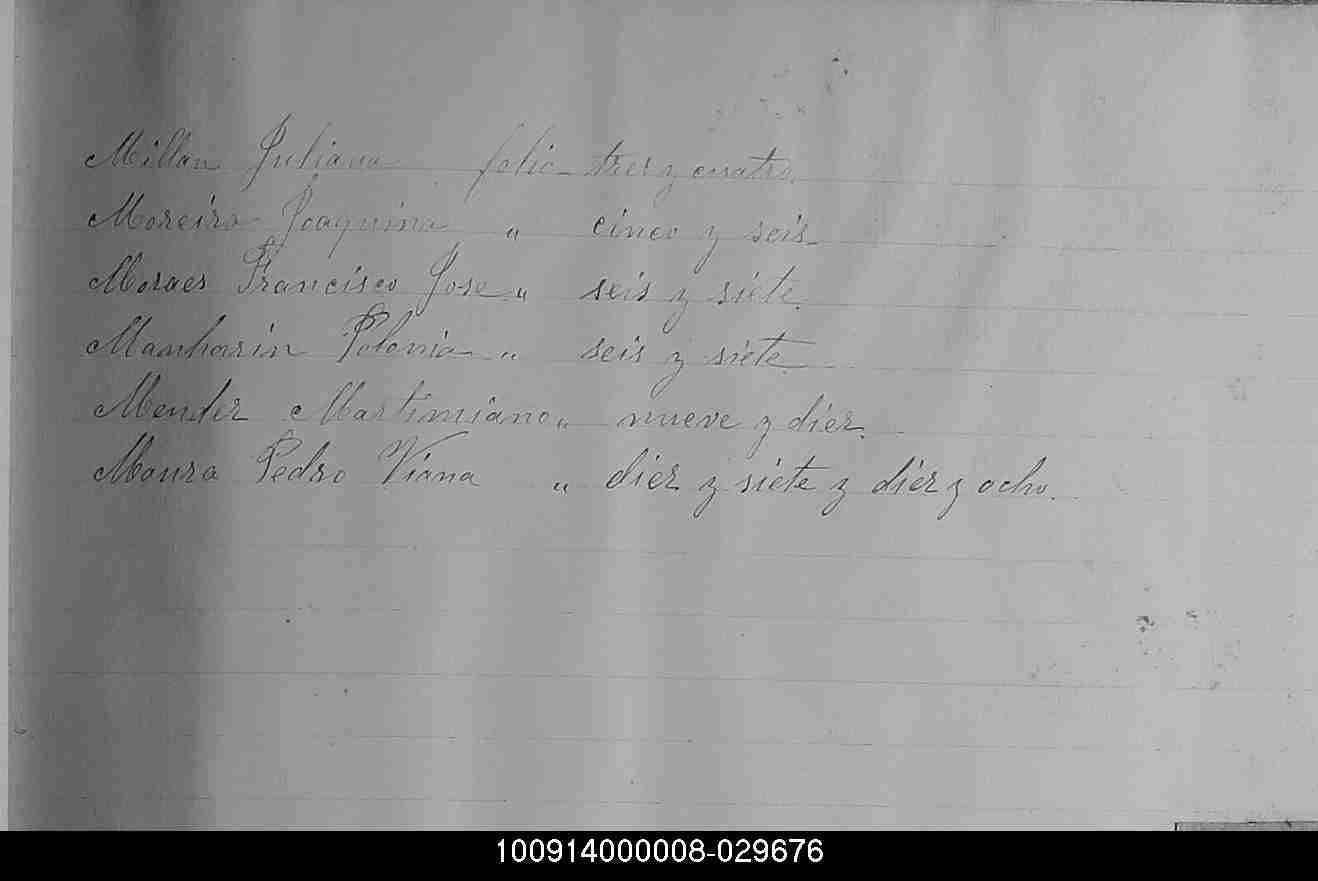 Millan Juliana folio tres y cuatro.
Moreira Joaquina " cinco y seis
Moraes Francisco Jose " seis y siete.
Manharin Polonia " seis y siete
Mendez Martimiano " nueve y diez.
Moura Pedro Viana " diez y siete y diez y ocho.
100914000008-029676